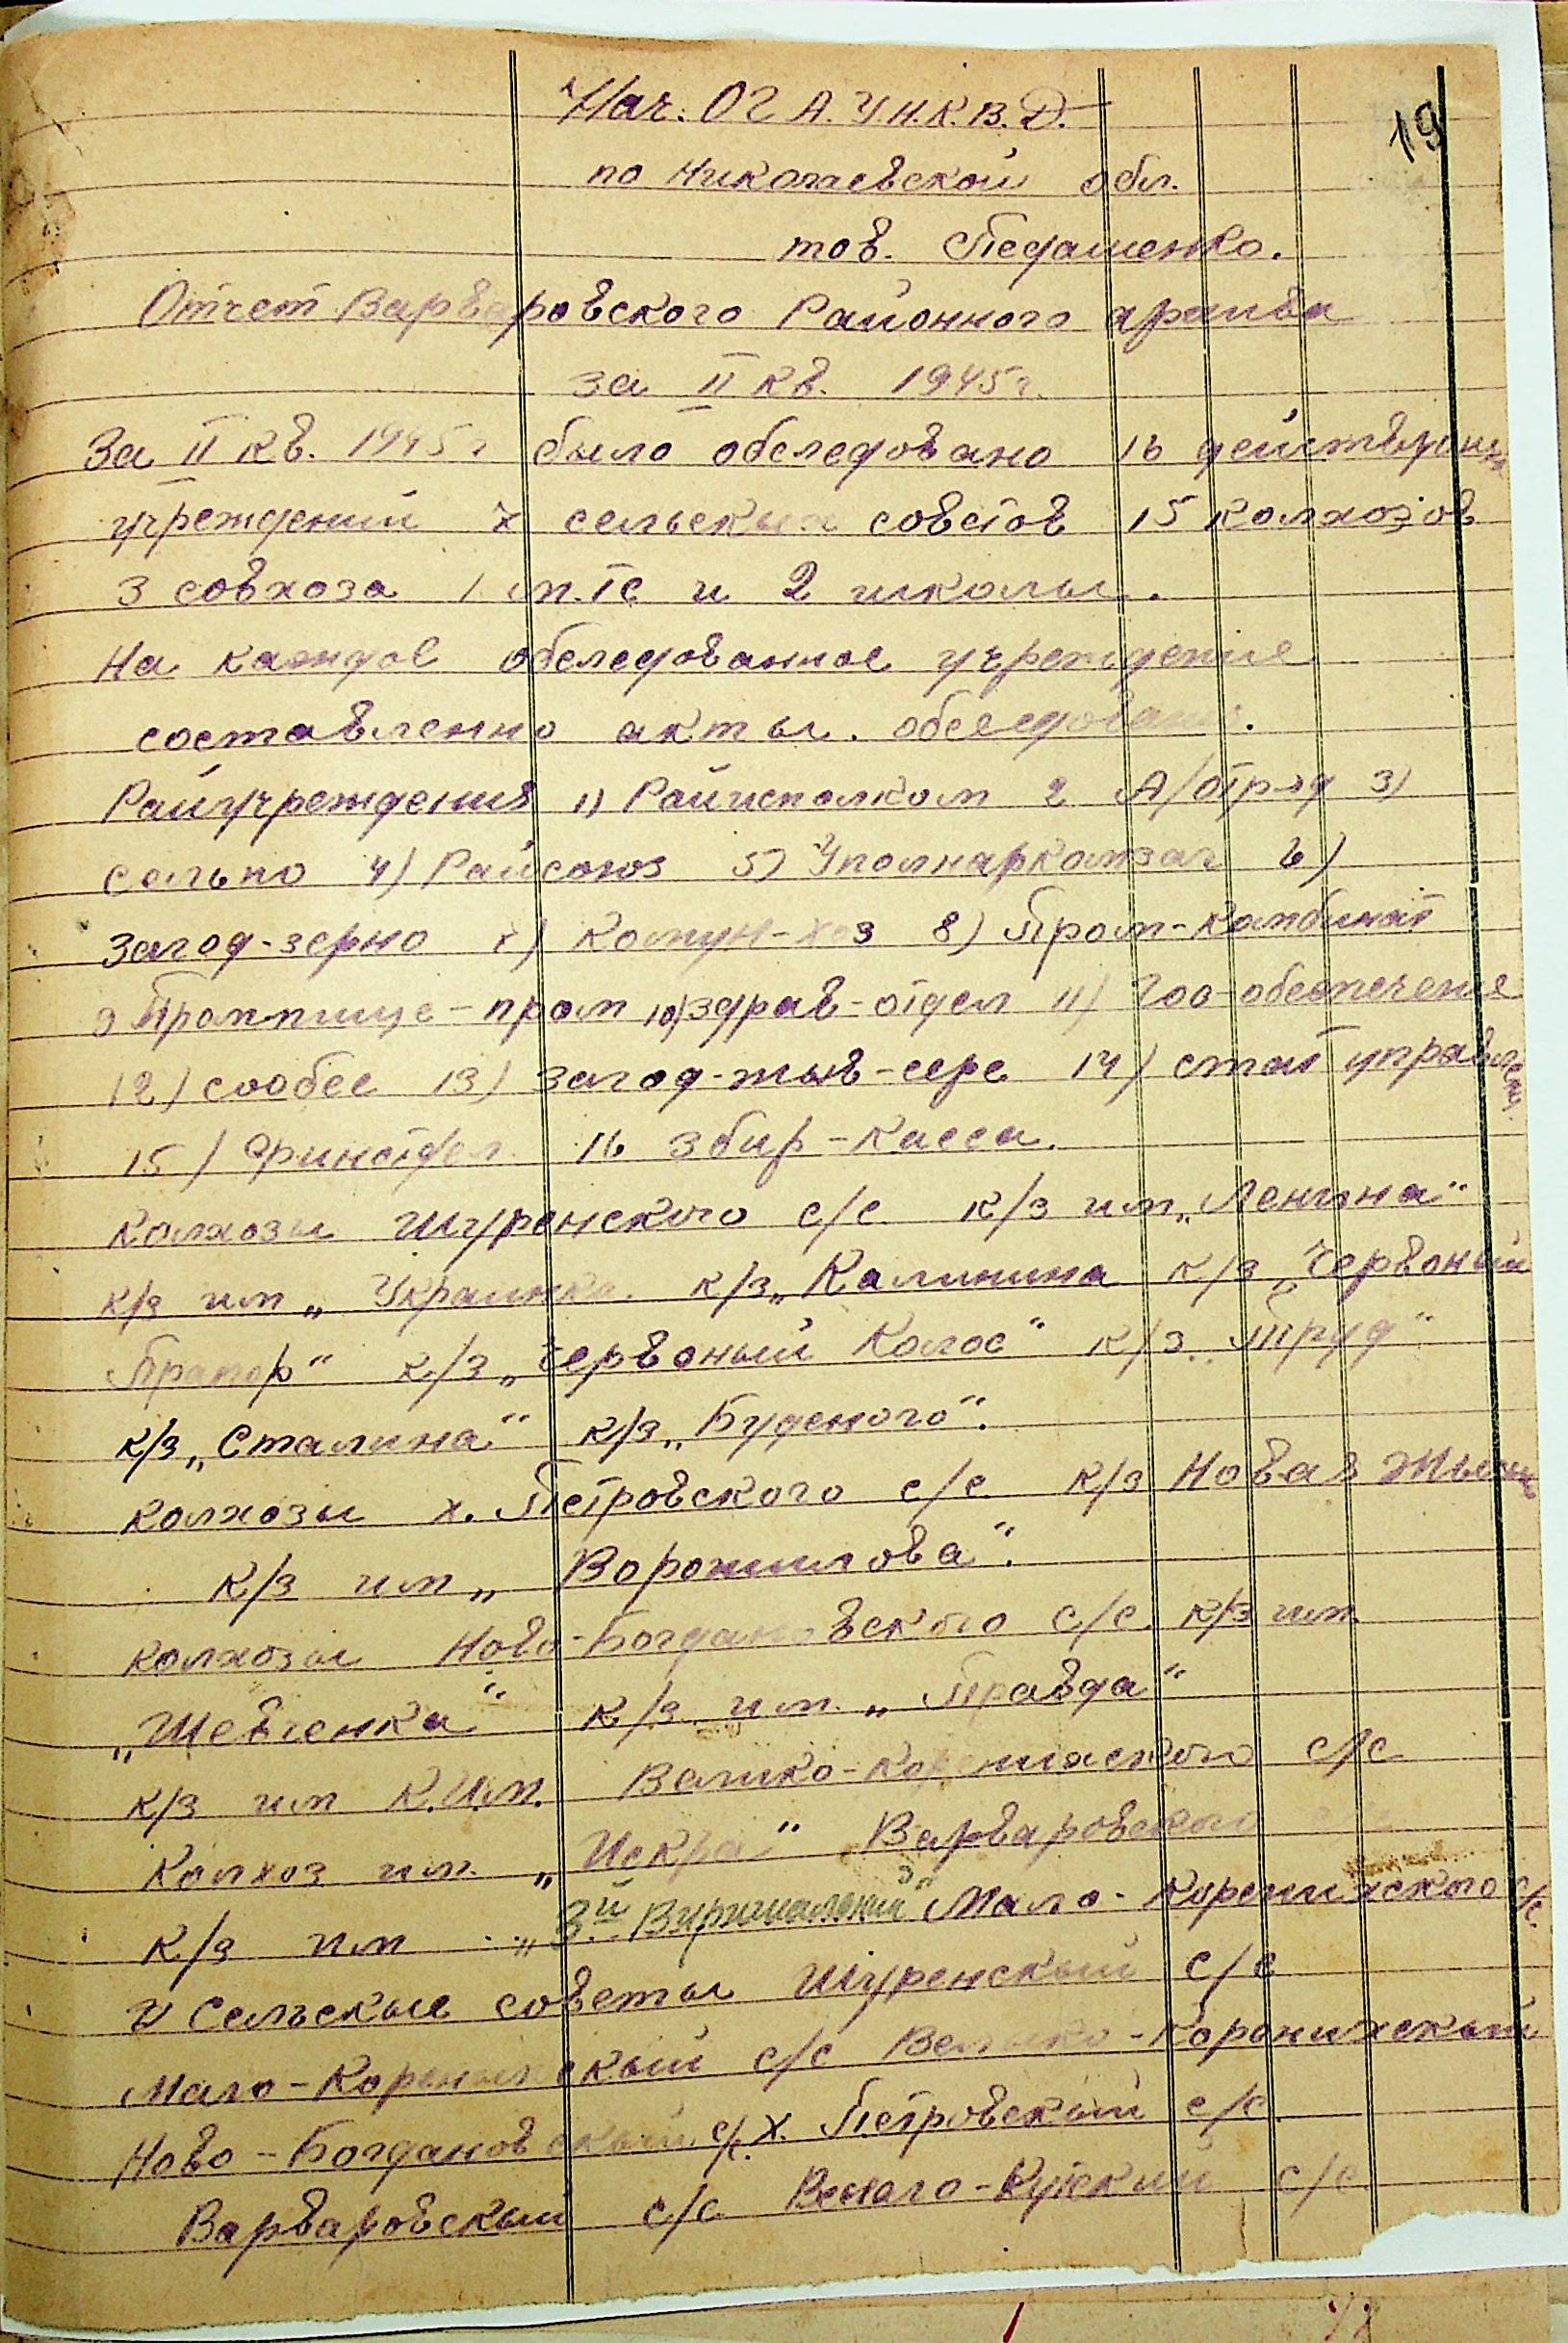 19
Нач. ОГА. УН.К.В.Д.
по Николаевской обл.
тов. Педашенко.
Отчет Варваровского Районного архива
за II кв. 1945 г.
За II кв. 1945 г было обследовано 16 действующих
учреждений 7 сельскых советов 15 колхозов
3 совхоза 1 м.тс и 2 школы.
На каждое обследованное учреждение
составленно акты. обследования.
Райучреждения 1) Райисполком 2 А/отряд 3)
сельпо 4) Райсоюз 5) Уполнаркомзаг 6)
Загод-зерно 7) Комун-хоз 8) Пром-Комбинат
9 Промпище-пром 10) здрав-отдел 11) Гоо-обеспечение
12) сообес 13) загод-жыв-сере 14) стат управлен.
15) Финотдел 16 Збир-касса.
Колхозы Шуренского с/с. к/з им „Ленина"
к/з им „ Украинка. к/з „Калинина к/з „Червоный
Прапор" к/з „Червоный Колос" к/з „Труд"
к/з „Сталина" к/з „Буденого".
колхозы х. Петровского с/с к/з Новая Жызнь
к/з им „ Ворошилова".
колхозы Ново-Богдановского с/с. к/з им.
„Шевченка" к/з им. „Правда"
к/з им К.И.М. Велико-Коренихского с/с
Колхоз им. „Искра" Варваровского
к/з им „3й Вирішальний" Мало-Коренихского с/с.
7 Сельскые советы Шуренскый с/с
Мало-Коренихскый с/с Велыко-Коронихскый
Ново-Богдановскый с/с. х. Петровскый с/с.
Варваровскый с/с
с/с